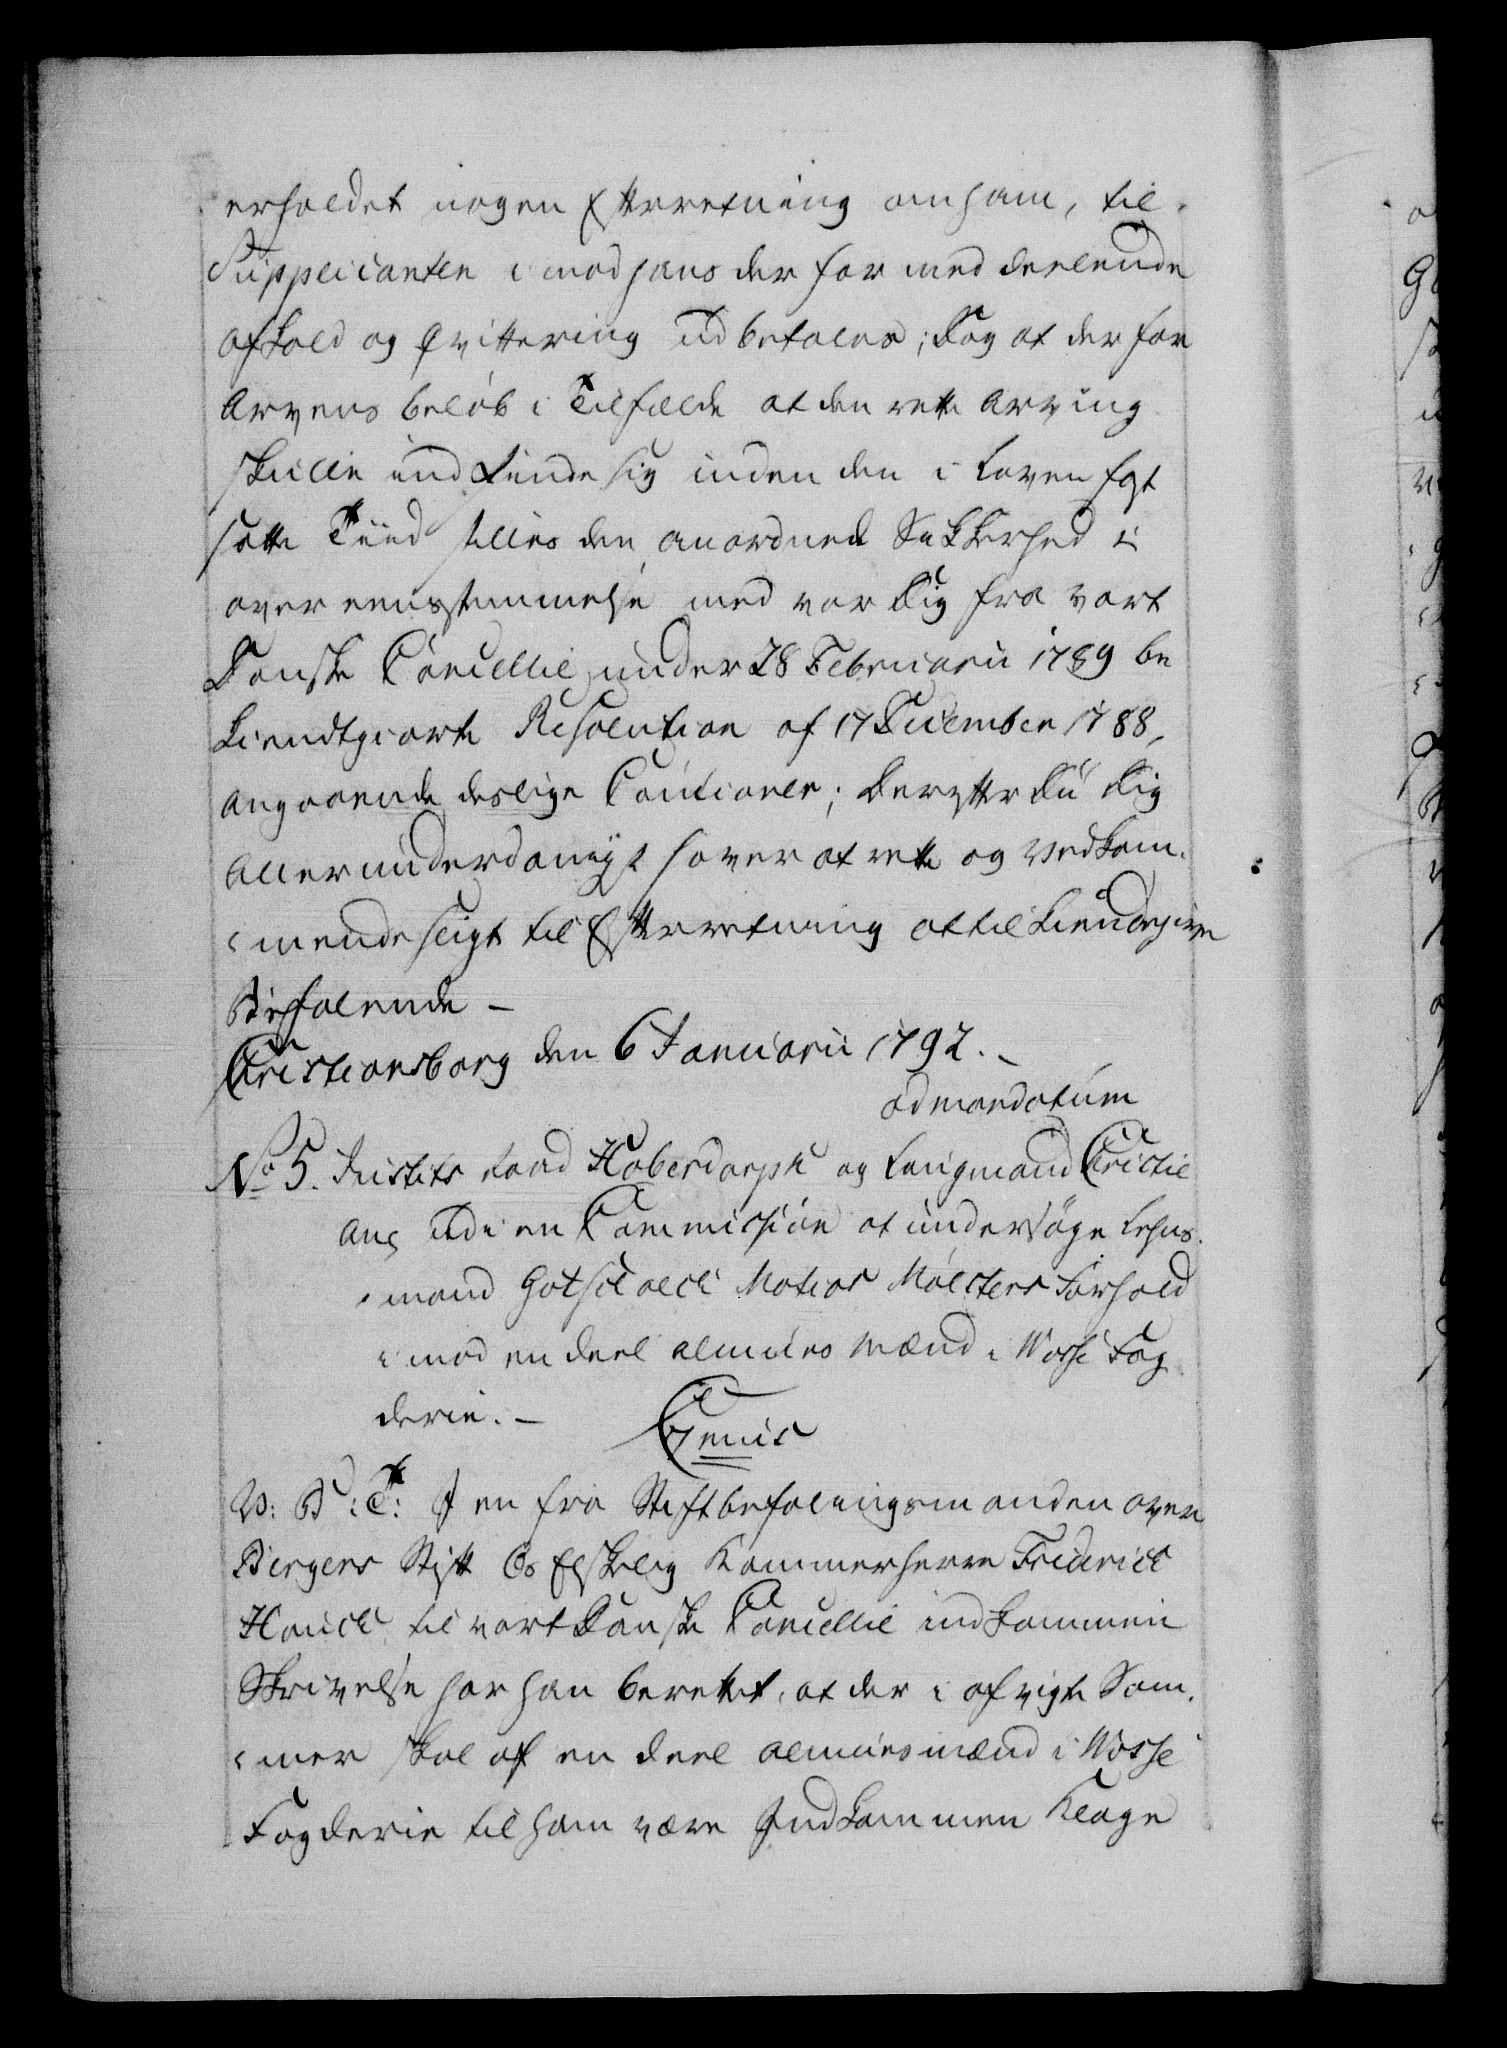 erholdet nogen Efterretning om ham, til
Supplicanten imod hans der for med deelende
afkald og Qvittering udbetales; Dog at der for
Arvens beløb i Tilfælde at den rette Arving
skulle indfinde sig inden den i Loven fast
satte Tiid stilles den anordnede Sikkerhed i
overeensstemmelse med vor Dig fra vort
Danske Cancellie under 28 Februarii 1789 be
kiendtgiorte Resolution af 17 December 1788,
angaaende deslige Cautioner; Derefter Du Dig
allerunderdanigst haver at rette og vedkom-
mende sligt til Efterretning at tilkiendegive
Befalende –
Christiansborg den 6 Januarii 1792. –
ad mandatum
No 5. Justits raad Haberdorph og Laugmand Christie
ang at i en Commission at undersøge Lehns-
mand Gotskalck Matias Mølsters Forhold
imod en deel almues Mænd i Vosse Fog
derie. –
Genis
V: B: T: I en fra Stiftbefalingsmanden over
Bergens Stift Os Elskelig Kammerherre Friderich
Hauch til vort Danske Cancellie indkommen
Skrivelse har han berettet, at der i afvigte Som-
mer skal af en deel almuesmænd i Vosse
Fogderie til ham være Indkommen Klage